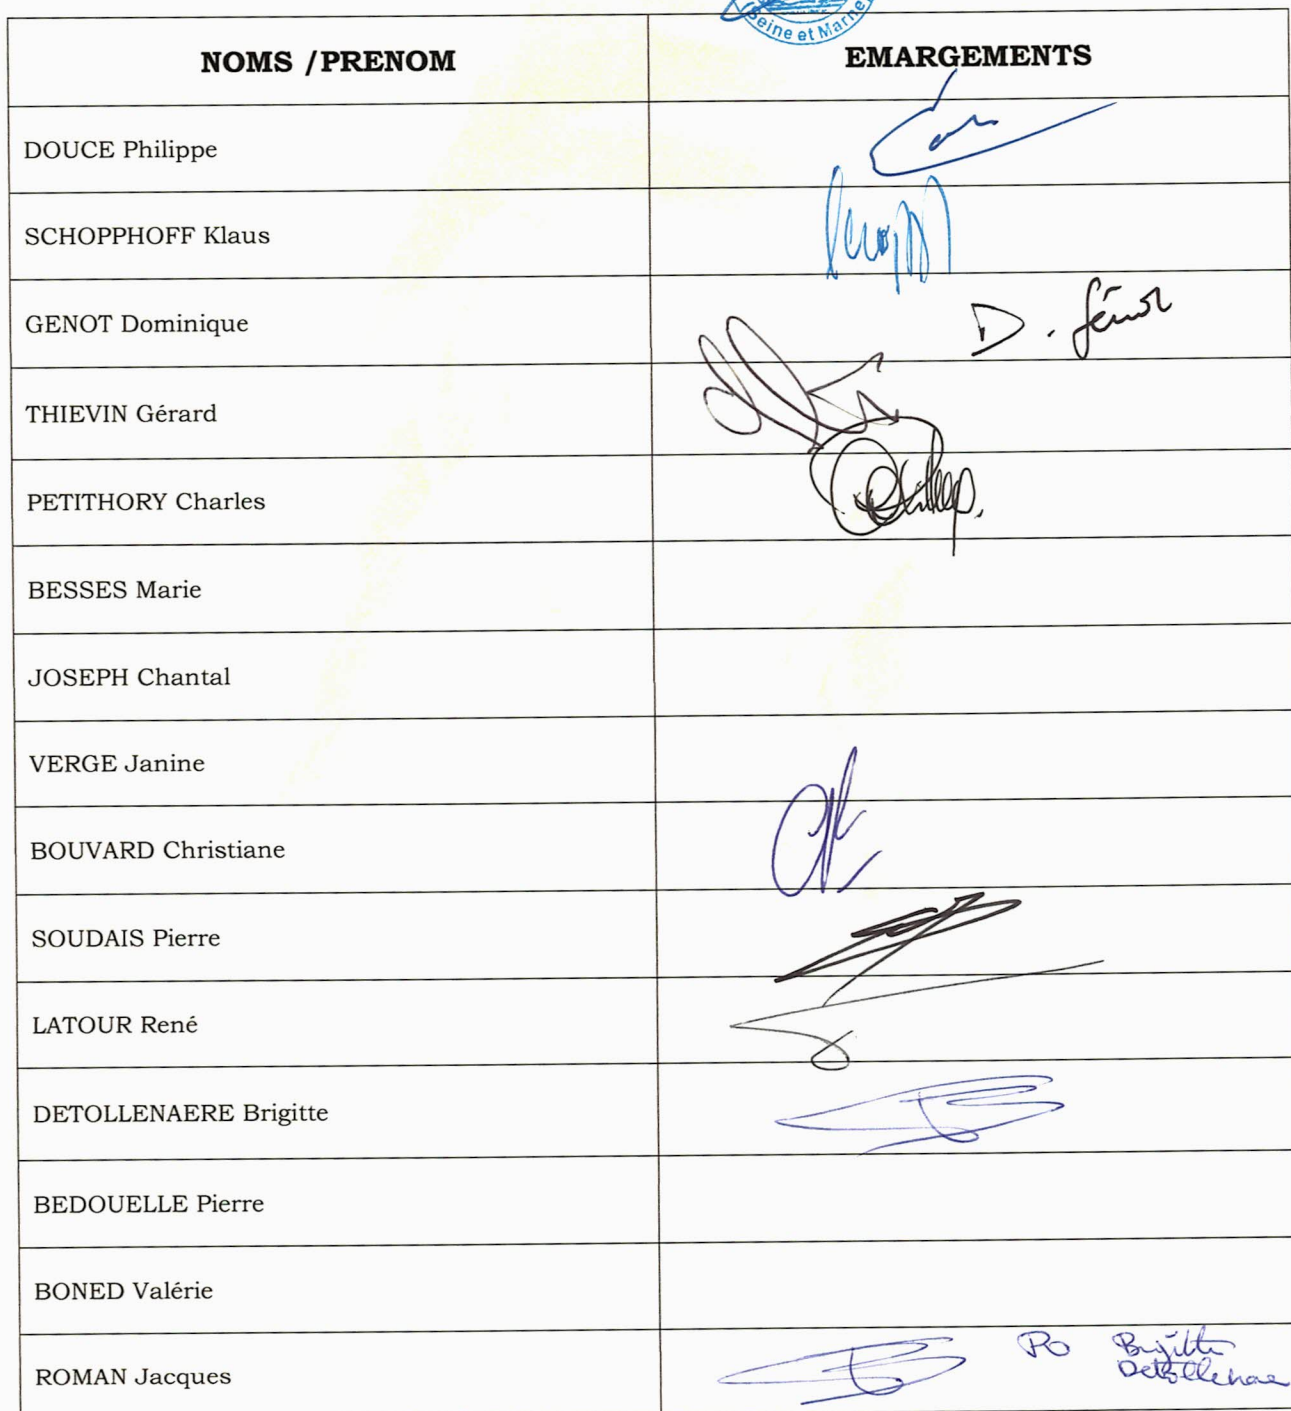 Seine et Marne
NOMS /PRENOM
EMARGEMENTS
DOUCE Philippe
SCHOPPHOFF Klaus
GENOT Dominique
D. Génot
THIEVIN Gérard
PETITHORY Charles
BESSES Marie
JOSEPH Chantal
VERGE Janine
BOUVARD Christiane
SOUDAIS Pierre
LATOUR René
DETOLLENAERE Brigitte
BEDOUELLE Pierre
BONED Valérie
ROMAN Jacques
PO Brigitte